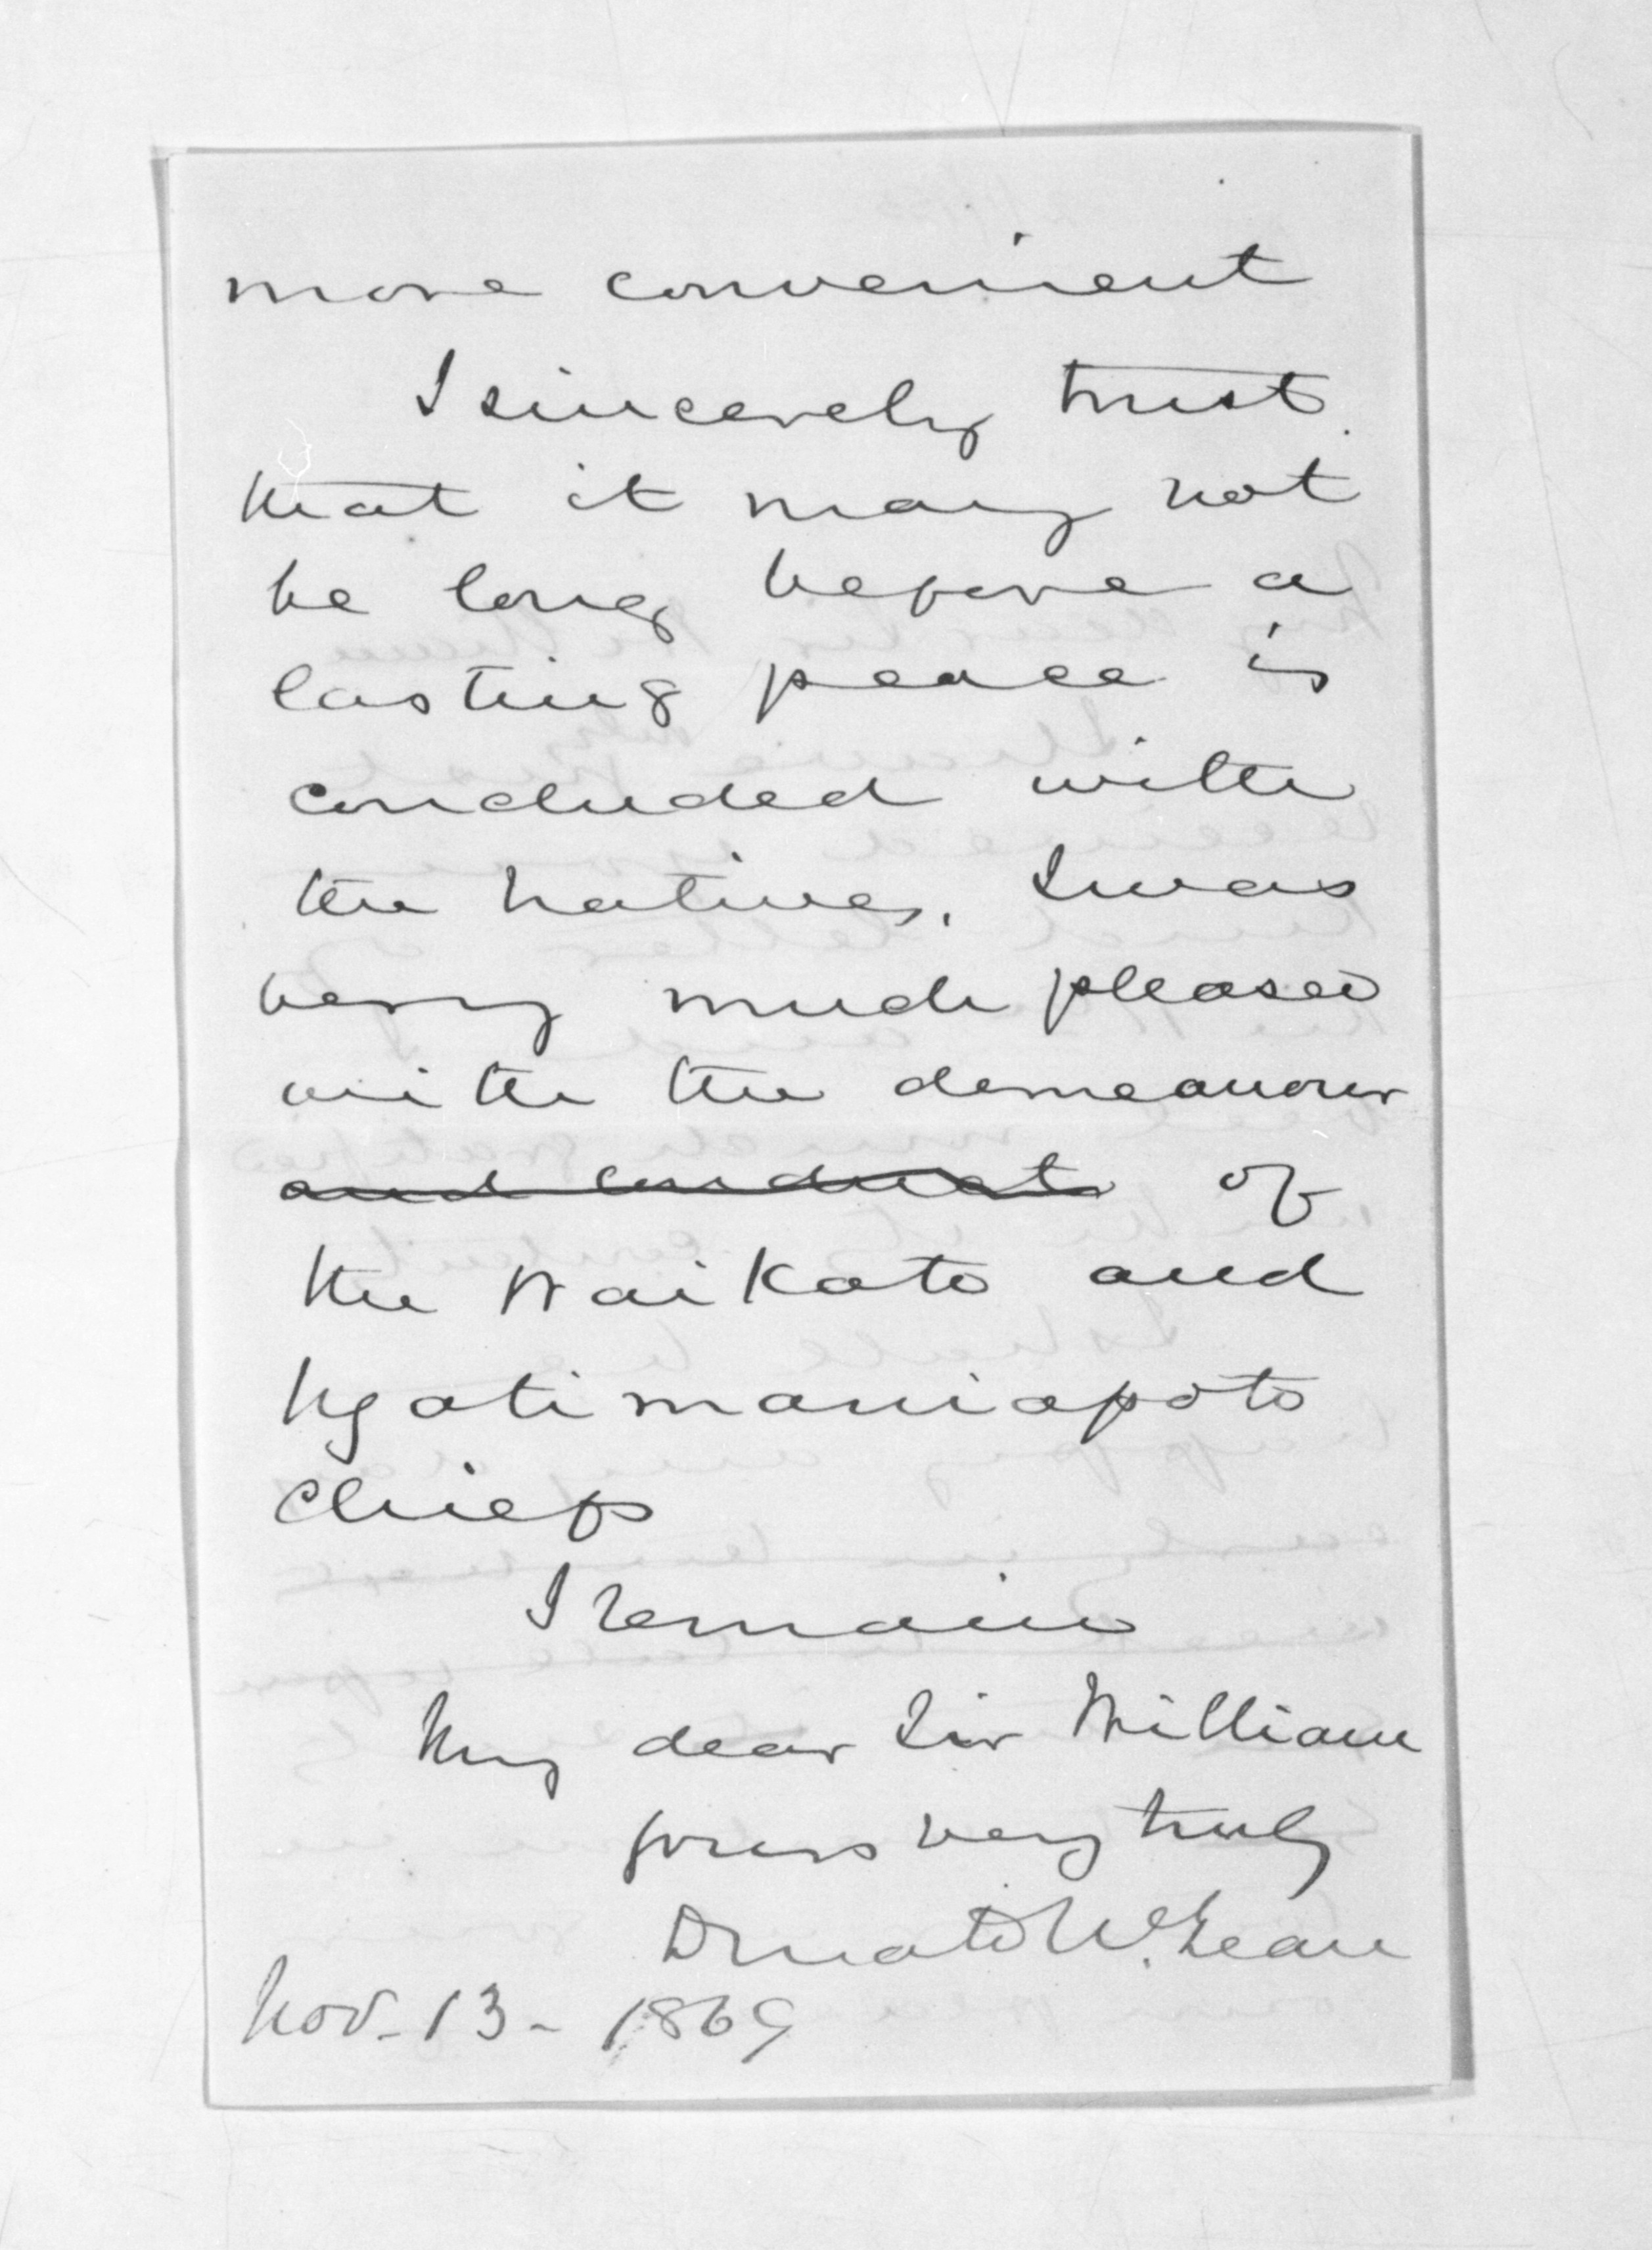 more convenient
I sincerely trust
that it may not
be long before a
lasting peace is
concluded with
the natives. I was
very much pleased
with the demeanour
and conduct of
the Waikato and
Ngatimaniapoto
chiefs
I remain
My dear Sir William
yours very truly
Donald McLean
Nov. 13 - 1869